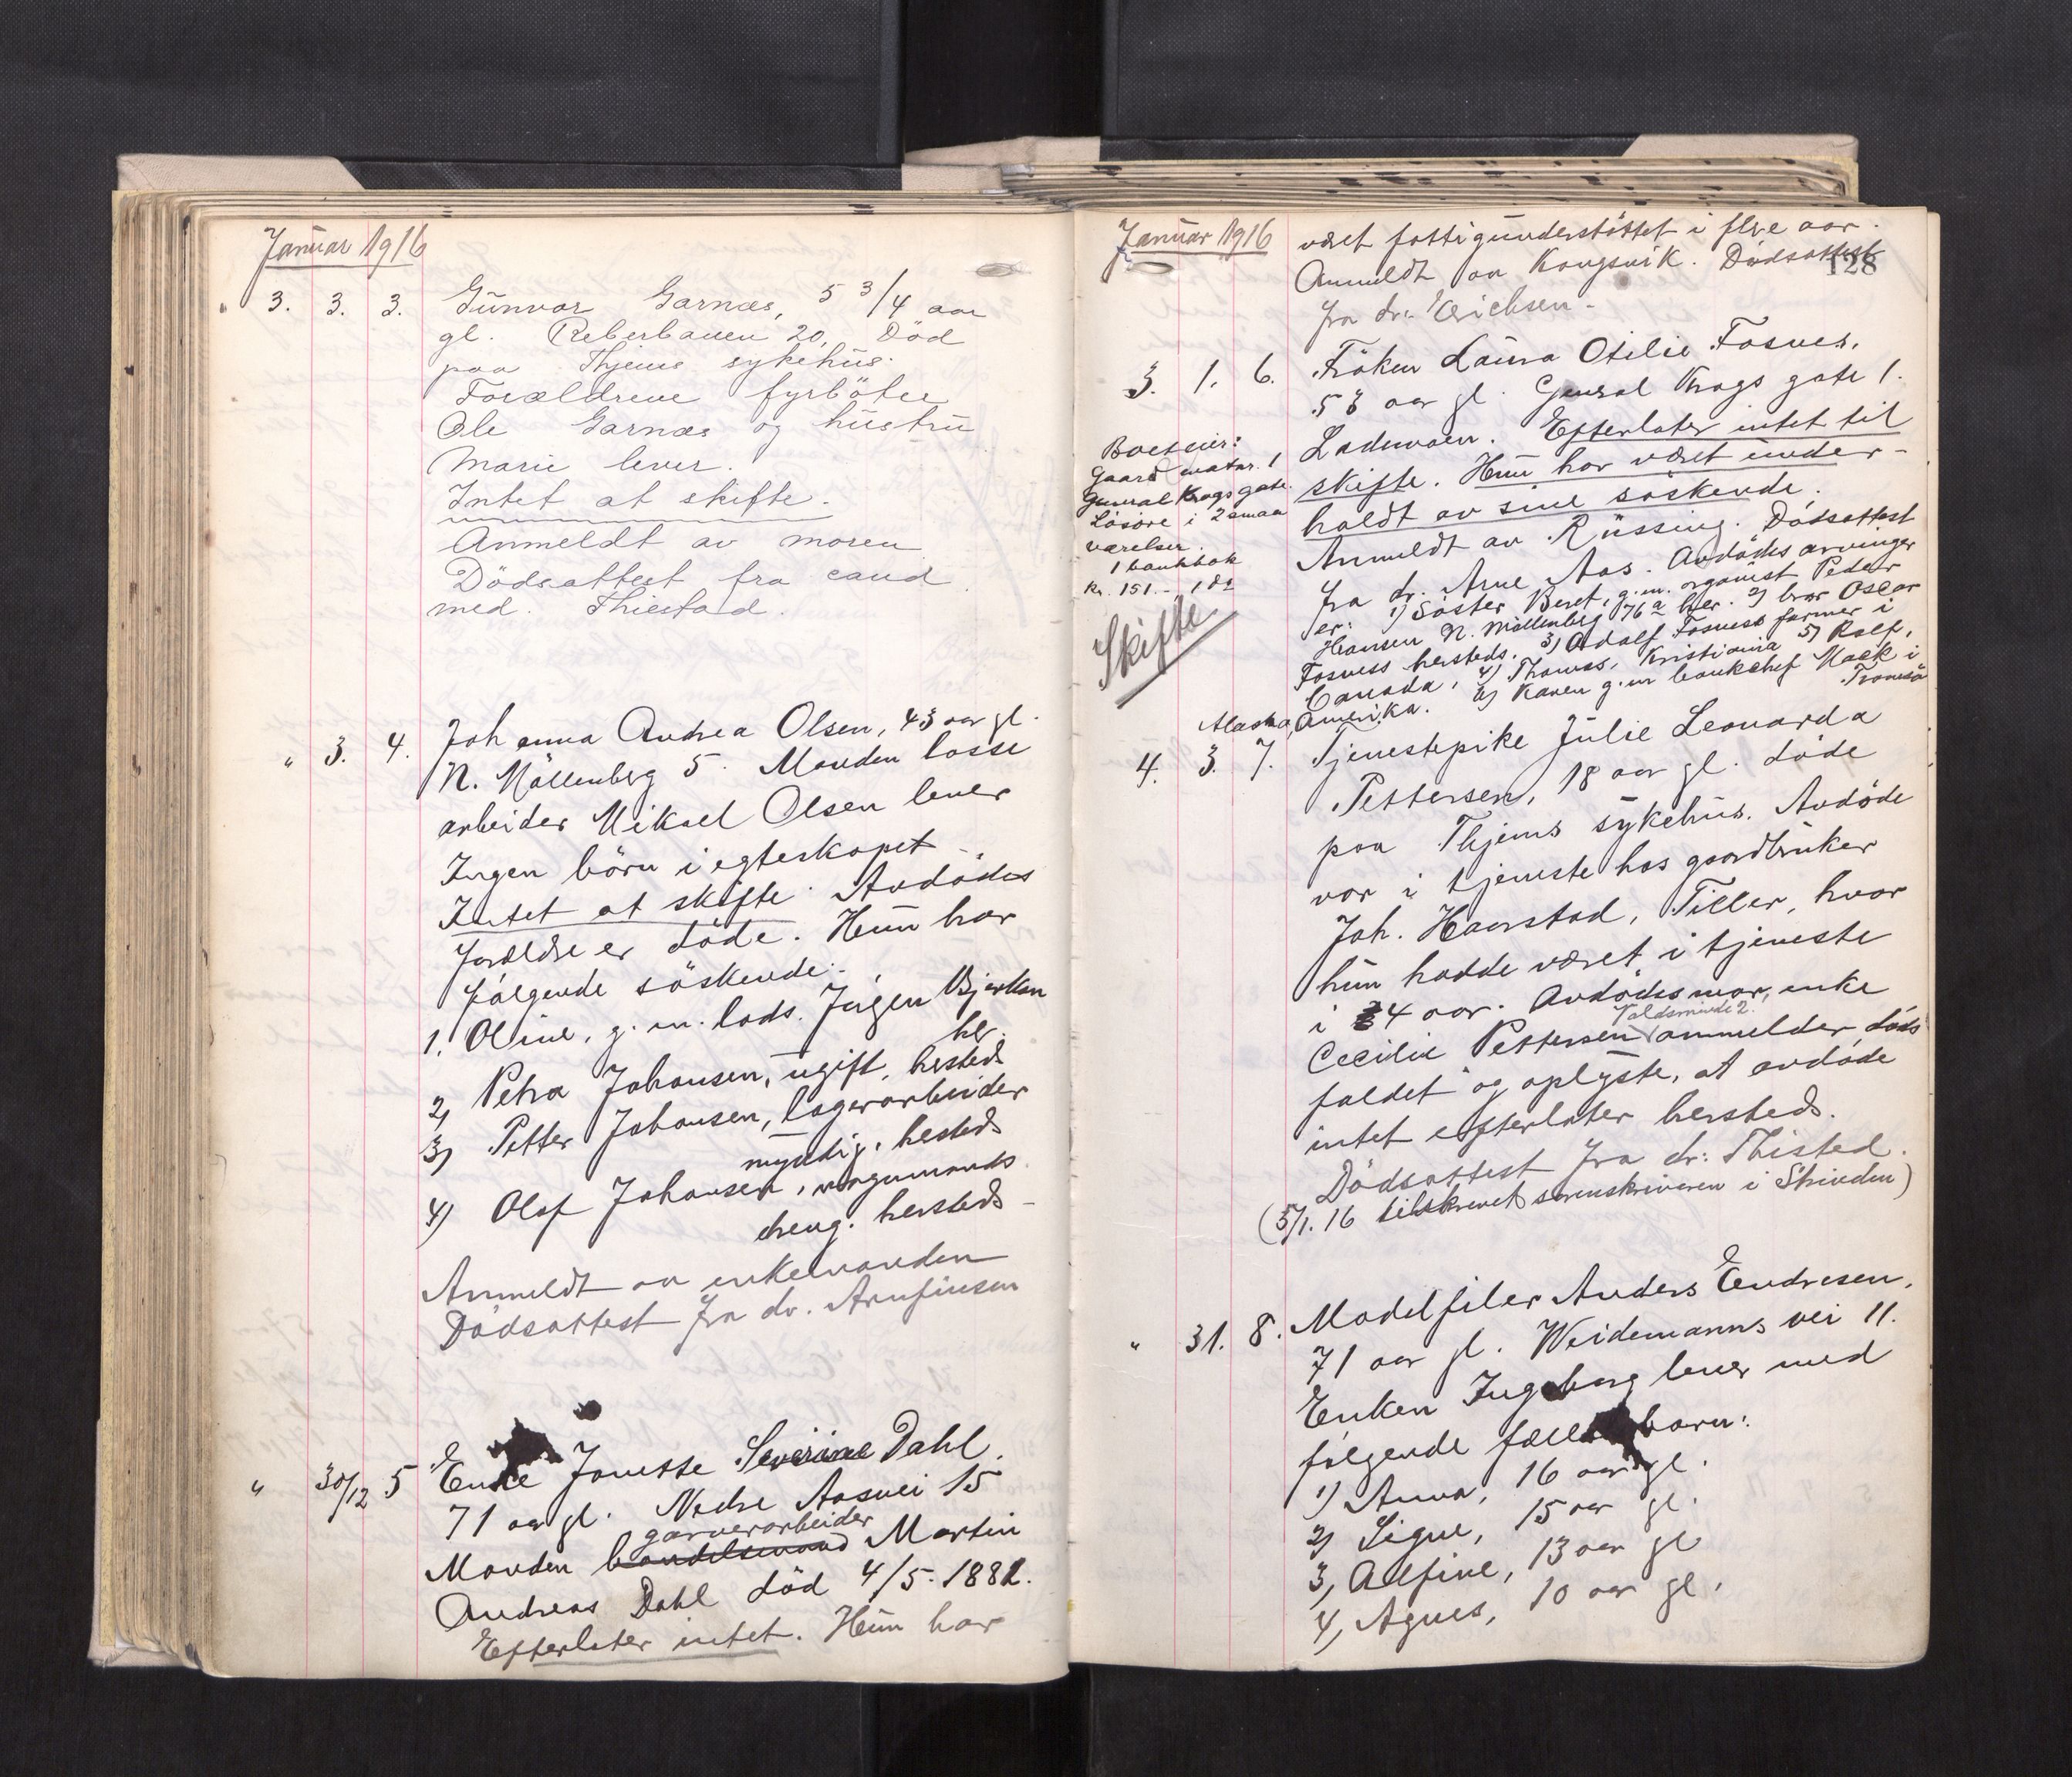 Januar 1916
" 3. 3. 3. Gunvor Garnæs, 5 3/4 aar
gl. Reberbanen 20, Död
paa Thjems sykehus.
Forældrene fyrböter
Ole Garnæs og hustru
Marie lever.
Intet at skifte.
Anmeldt av moren
Dödsattest fra cand
med. Thiestad.
" 3. 4. Johanna Andrea Olsen, 43 aar gl.
N. Möllenberg 5. Manden losse
arbeider Mikael Olsen lever
Ingen börn i egteskapet.
Intet at skifte. Avdödes
forældre er döde. Hun har
fölgende söskende:
1. Oline, g. m. lods. Jörgen Bjerkan
her.
2) Petra Johansen, ugift, hersteds
3) Petter Johansen, lagerarbeider
myndig, hersteds
4) Olaf Johansen, vognmands
dreng. hersteds -
Anmeldt av enkemanden
Dödsattest fra dr. Arnfinsen
" 30/12 5 Enke Jonette Severine Dahl.
71 aar gl. Nedre Aasvei 15
garverarbeider
Manden handelsmand Martin
Andreas Dahl död 4/5. 1882.
Efterlater intet. Hun har
Januar 1916
128
været fattigunderstöttet i flere aar.
Anmeldt av Kongsvik. Dödsattest
fra dr. Erichsen.
3. 1. 6. Fröken Laura Otilie Fosnes,
53 aar gl. General Krags gate 1.
Lademoen. Efterlater intet til
skifte. Hun har været under-
holdt av sine söskende.
Anmeldt av Rüssing. Dödsattest
fra dr. Arne Aas. Avdödes arvinger
er: 1) Söster Beret, g. m. organist Peder
Hansen N. Möllenberg 76a her. 2) bror Oscar
Fosness hersteds. 3) Adolf Fosness farmer i
Canada, 4) Thomas, Kristiania 5) Rolf,
Alaska, Amerika. 6) Karen g. m. bankchef Mack i
Tromsö
Boet eier:
Gaard matr. 1
General Krags gate.
Lösöre i 2 smaa
værelser.
1 bankbok
kr. 151.-
Skifte
4. 3. 7. Tjenestepike Julie Leonarda
Pettersen, 18 aar gl. döde
paa Thjems sykehus. Avdöde
var i tjeneste hos gaardbruker
Joh. Haarstad, Tiller, hvor
hun hadde været i tjeneste
i 4 aar. Avdödes mor, enke
Cecilie Pettersen anmelder döds
faldet og oplyste, at avdöde
intet efterlater hersteds.
Dödsattest fra dr: Thisted.
(5/1. 16 tilskrevet sorenskriveren i Strinden)
" 31. 8. Modelfiler Anders Endresen,
71 aar gl. Weidemanns vei 11.
Enken Ingeborg lever med
fölgende fælles barn:
1) Anna, 16 aar gl.
2) Signe, 15 aar gl.
3) Alfine, 13 aar gl
4) Agnes, 10 aar gl.